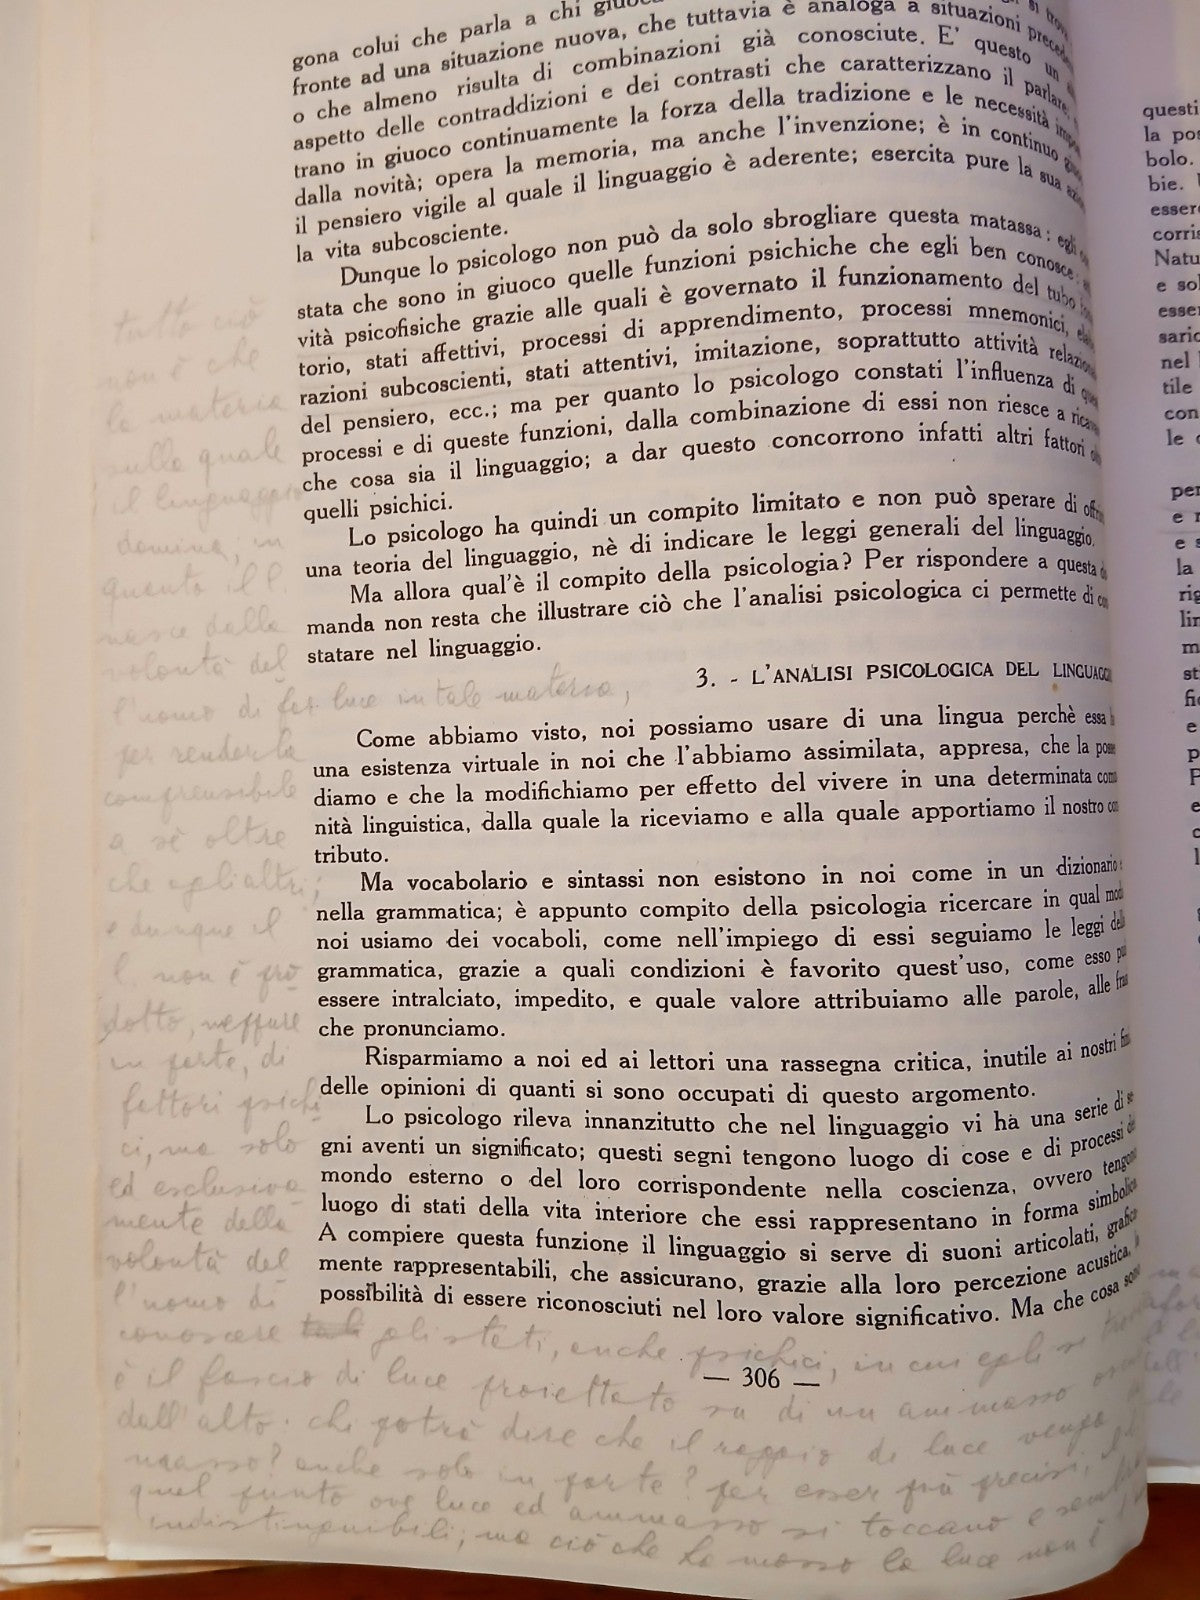 gona colui che parla a chi
fronte ad una situazione nuova, che tuttavia è analoga a situazioni
o che almeno risulta di combinazioni già conosciute. E' questo un
aspetto delle contraddizioni e dei contrasti che caratterizzano il parlare:
trano in giuoco continuamente la forza della tradizione e le necessità
dalla novità; opera la memoria, ma anche l'invenzione; è in continuo
il pensiero vigile al quale il linguaggio è aderente; esercita pure la sua
la vita subcosciente.
Dunque lo psicologo non può da solo sbrogliare questa matassa: egli
stata che sono in giuoco quelle funzioni psichiche che egli ben conosce:
vità psicofisiche grazie alle quali è governato il funzionamento del tubo
torio, stati affettivi, processi di apprendimento, processi mnemonici,
razioni subcoscienti, stati attentivi, imitazione, soprattutto attività
del pensiero, ecc.; ma per quanto lo psicologo constati l'influenza di
processi e di queste funzioni, dalla combinazione di essi non riesce a
che cosa sia il linguaggio; a dar questo concorrono infatti altri fattori
quelli psichici.
Lo psicologo ha quindi un compito limitato e non può sperare di
una teoria del linguaggio, nè di indicare le leggi generali del linguaggio.
Ma allora qual'è il compito della psicologia? Per rispondere a questa
manda non resta che illustrare ciò che l'analisi psicologica ci permette di
statare nel linguaggio.
3. - L'ANALISI PSICOLOGICA DEL
Come abbiamo visto, noi possiamo usare di una lingua perchè essa
una esistenza virtuale in noi che l'abbiamo assimilata, appresa, che la
diamo e che la modifichiamo per effetto del vivere in una determinata
nità linguistica, dalla quale la riceviamo e alla quale apportiamo il nostro
tributo.
Ma vocabolario e sintassi non esistono in noi come in un dizionario
nella grammatica; è appunto compito della psicologia ricercare in qual
noi usiamo dei vocaboli, come nell'impiego di essi seguiamo le leggi
grammatica, grazie a quali condizioni è favorito quest'uso, come esso
essere intralciato, impedito, e quale valore attribuiamo alle parole, alle
che pronunciamo.
Risparmiamo a noi ed ai lettori una rassegna critica, inutile ai nostri
delle opinioni di quanti si sono occupati di questo argomento.
Lo psicologo rileva innanzitutto che nel linguaggio vi ha una serie di
gni aventi un significato; questi segni tengono luogo di cose e di processi
mondo esterno o del loro corrispondente nella coscienza, ovvero
luogo di stati della vita interiore che essi rappresentano in forma
A compiere questa funzione il linguaggio si serve di suoni articolati,
mente rappresentabili, che assicurano, grazie alla loro percezione acustica,
possibilità di essere riconosciuti nel loro valore significativo. Ma che cosa
— 306 —
tutto ciò
non è che
la materia
sulla quale
il linguaggio
domina, in
quanto il l.
nasce dalla
volontà del
l'uomo di far luce in tale materia,
per renderla
comprensibile
a sè oltre
che agli altri;
e dunque il
l. non è pro
dotto, neppure
in parte, di
fattori psichi
ci, ma solo
ed esclusiva
mente della
volontà del
l'uomo di
conoscere gli stati, anche psichici, in cui egli si
è il fascio di luce proiettato su di un ammasso
dall'alto: chi potrà dire che il raggio di luce venga
masso? anche solo in parte? per esser più precisi,
quel punto ove luce ed ammasso si toccano e
indistinguibili; ma ciò che ha mosso la luce non è
questi
la
bolo.
bie.
esser
Natu
e
nel
tile
con
le
per
e
la